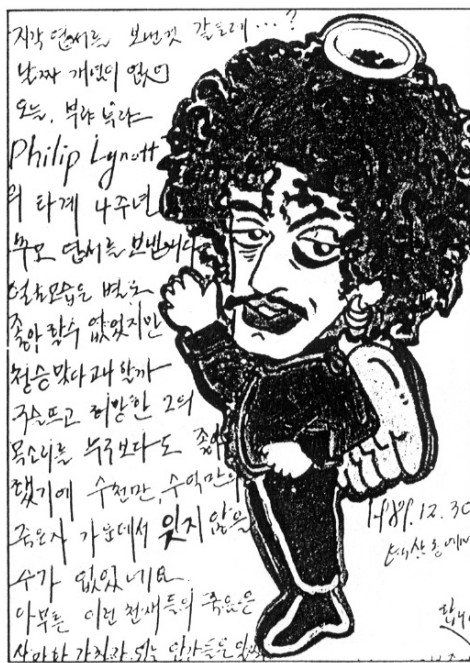 지각 엽서를 보낸것 같은데...?
날짜 개념이 없어
오늘, 부랴 부랴
Philip Lynott
의 타계 4주년
추모 엽서를 보냅니다
얼굴모습은 별로
좋아 할수 없었지만
청승맞다고나 할까
구슬프고 허망한 그의
목소리를 누구보다도 좋아
했기에 수천만, 수억만의
죽은자 가운데서 잊지 않을
수가 없었네요
아무튼 이런 천재들의 죽음은
1989.12.30